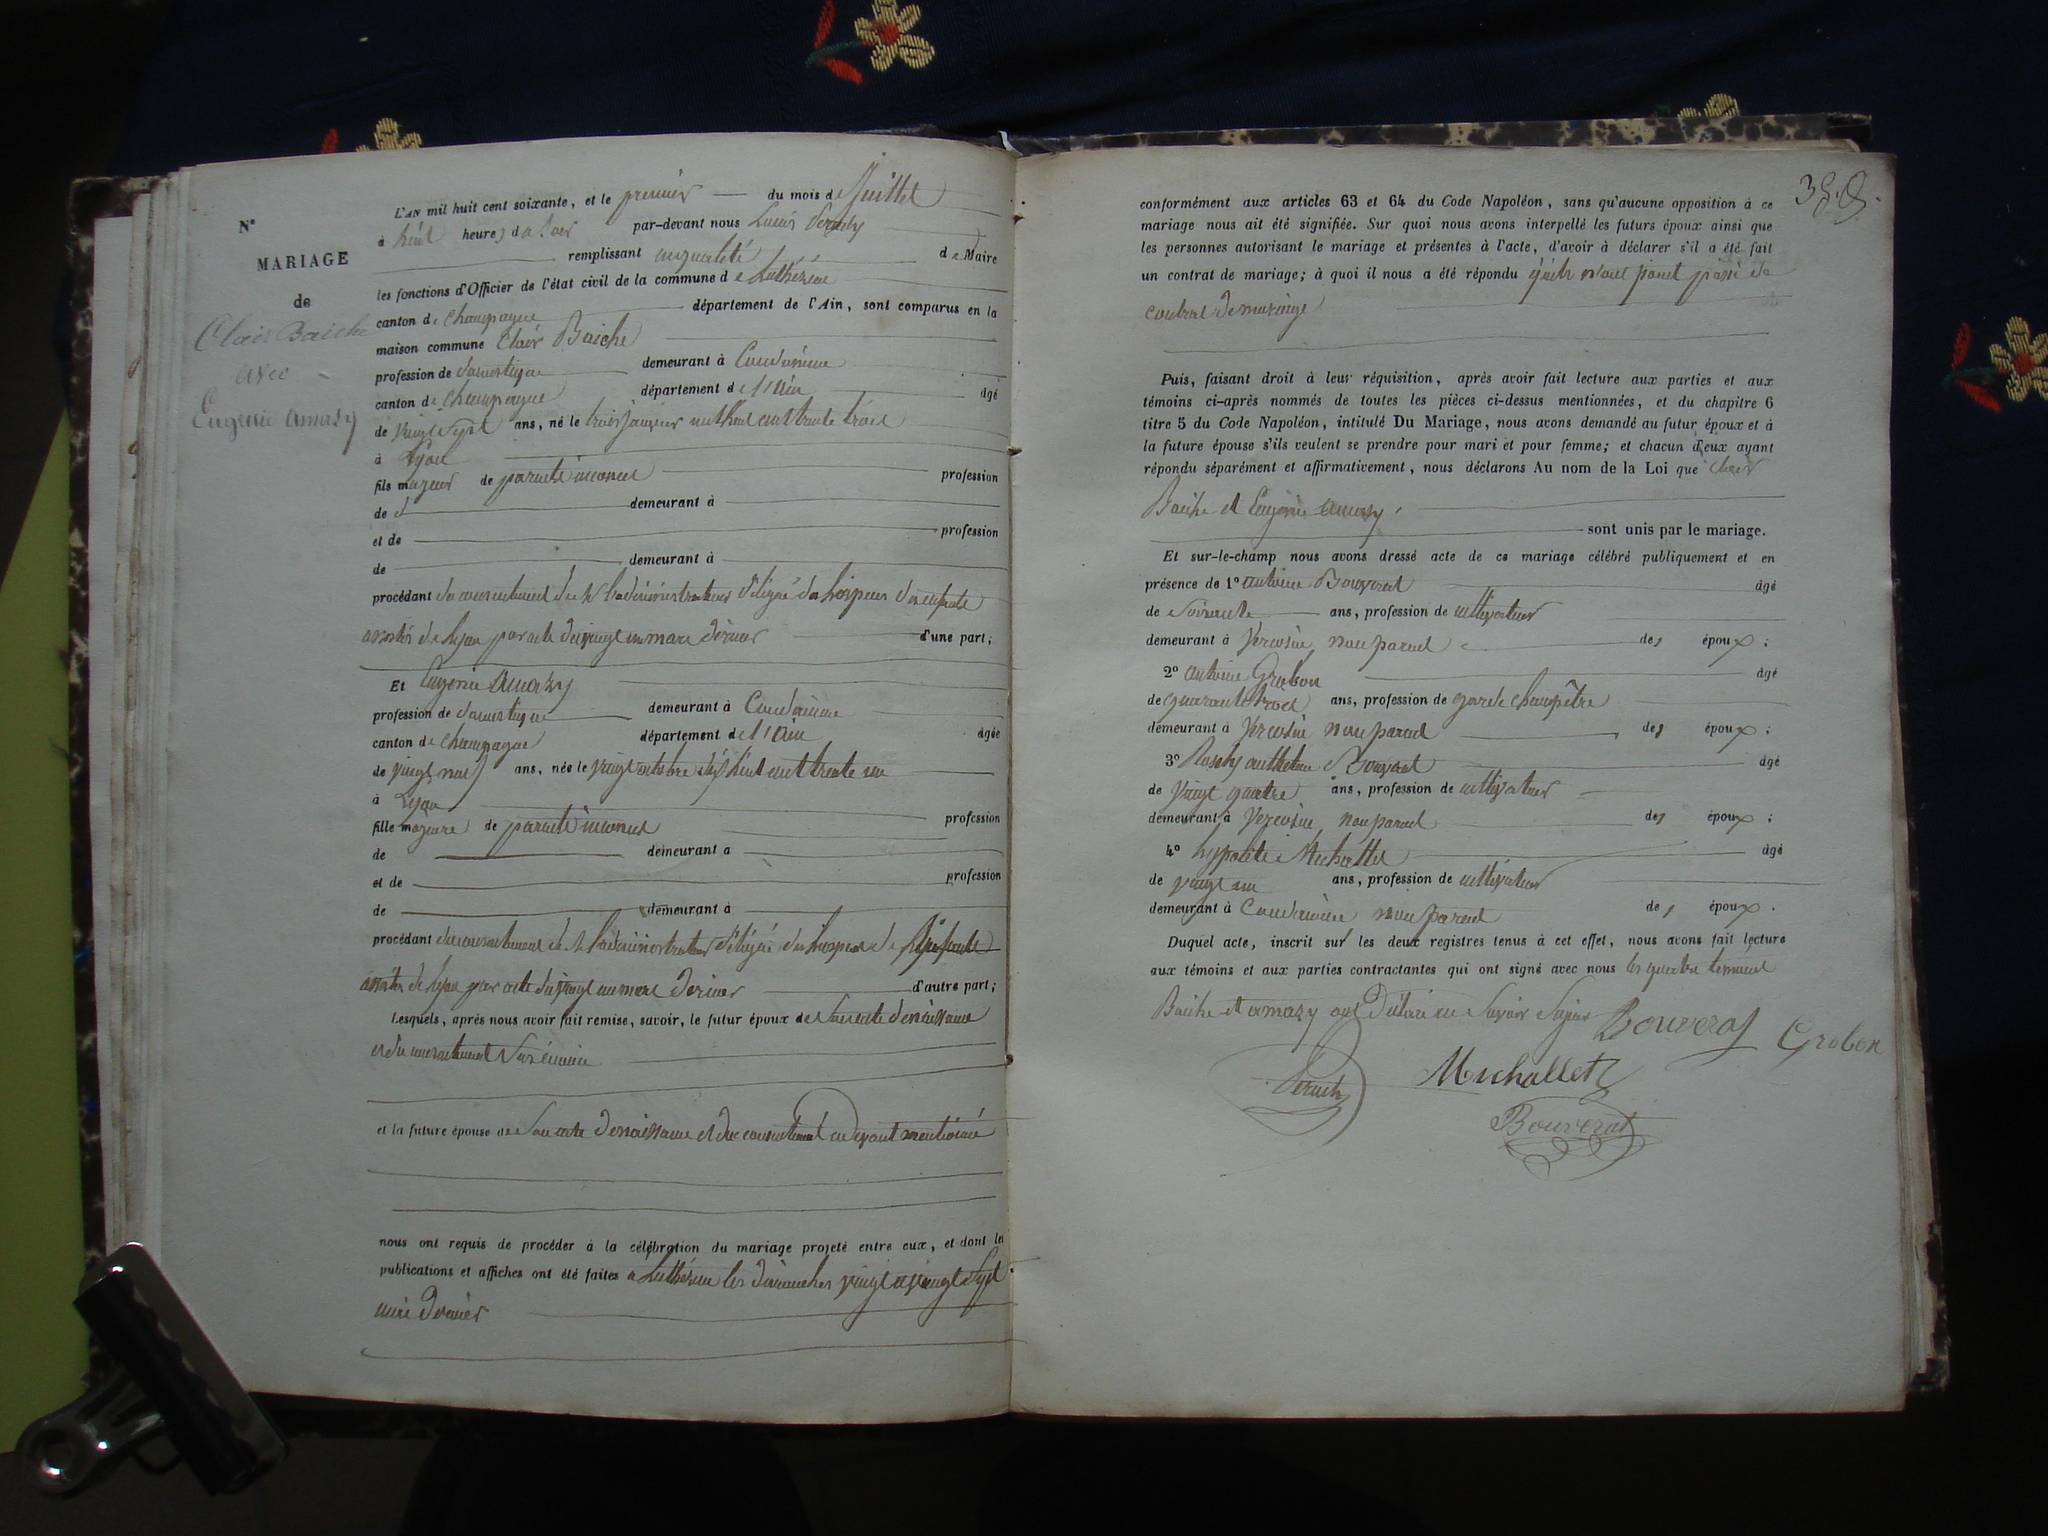 N°
MARIAGE
de
Clair Baiche
avec
Eugenie amazy
L'AN mil huit cent soixante, et le premier du mois de Juillet
à huit heures du soir par-devant nous Louis
remplissant en qualité de Maire
les fonctions d'Officier de l'état civil de la commune de Luthézieu
canton de Champagne département de l'Ain, sont comparus en la
maison commune Clair Baiche
profession de domestique demeurant à
canton de Champagne département de l'Ain âgé
de vingt sept ans, né le trois janvier mil huit cent trente trois
à Lyon
fils majeur de parents inconnus profession
de demeurant à
et de profession
de demeurant à
procédant du consentement de l'administrateur délégué des hospices des enfants
assistés de Lyon par acte du vingt un mars dernier d'une part;
Et Eugenie Amazy
profession de domestique demeurant à
canton de Champagne département de l'Ain âgée
de vingt neuf ans, née le vingt octobre dix huit cent trente un
à Lyon
fille majeure de parents inconnus profession
de demeurant à
et de profession
de demeurant à
procédant du consentement de l'administrateur délégué des hospices de
assistés de Lyon par acte du vingt un mars dernier d'autre part;
Lesquels, après nous avoir fait remise, savoir, le futur époux de son acte de naissance
et du consentement
et la future épouse de son acte de naissance et du consentement ci devant mentionné
nous ont requis de procéder à la célébration du mariage projeté entre eux, et dont les
publications et affiches ont été faites à Luthézieu les dimanches vingt et vingt sept
dernier
358.
conformément aux articles 63 et 64 du Code Napoléon, sans qu'aucune opposition à ce
mariage nous ait été signifiée. Sur quoi nous avons interpellé les futurs époux ainsi que
les personnes autorisant le mariage et présentes à l'acte, d'avoir à déclarer s'il a été fait
un contrat de mariage; à quoi il nous a été répondu qu'ils n'ont point passé de
contrat de mariage
Puis, faisant droit à leur réquisition, après avoir fait lecture aux parties et aux
témoins ci-après nommés de toutes les pièces ci-dessus mentionnées, et du chapitre 6
titre 5 du Code Napoléon, intitulé Du Mariage, nous avons demandé au futur époux et à
la future épouse s'ils veulent se prendre pour mari et pour femme; et chacun d'eux ayant
répondu séparément et affirmativement, nous déclarons Au nom de la Loi que Clair
Baiche et Eugenie Amazy
sont unis par le mariage.
Et sur-le-champ nous avons dressé acte de ce mariage célébré publiquement et en
présence de 1° antoine Bouverat âgé
de soixante ans, profession de cultivateur
demeurant à non parent des époux;
2° antoine Grobon âgé
de quarante trois ans, profession de garde champêtre
demeurant à non parent des époux;
3° anthelme Bouverat âgé
de vingt quatre ans, profession de cultivateur
demeurant à non parent des époux;
4° hypolite Michallet âgé
de vingt un ans, profession de cultivateur
demeurant à non parent des époux.
Duquel acte, inscrit sur les deux registres tenus à cet effet, nous avons fait lecture
aux témoins et aux parties contractantes qui ont signé avec nous les quatre témoins
Baiche et amazy ont déclaré ne savoir signer Bouverat Grobon
Michallet
Bouverat